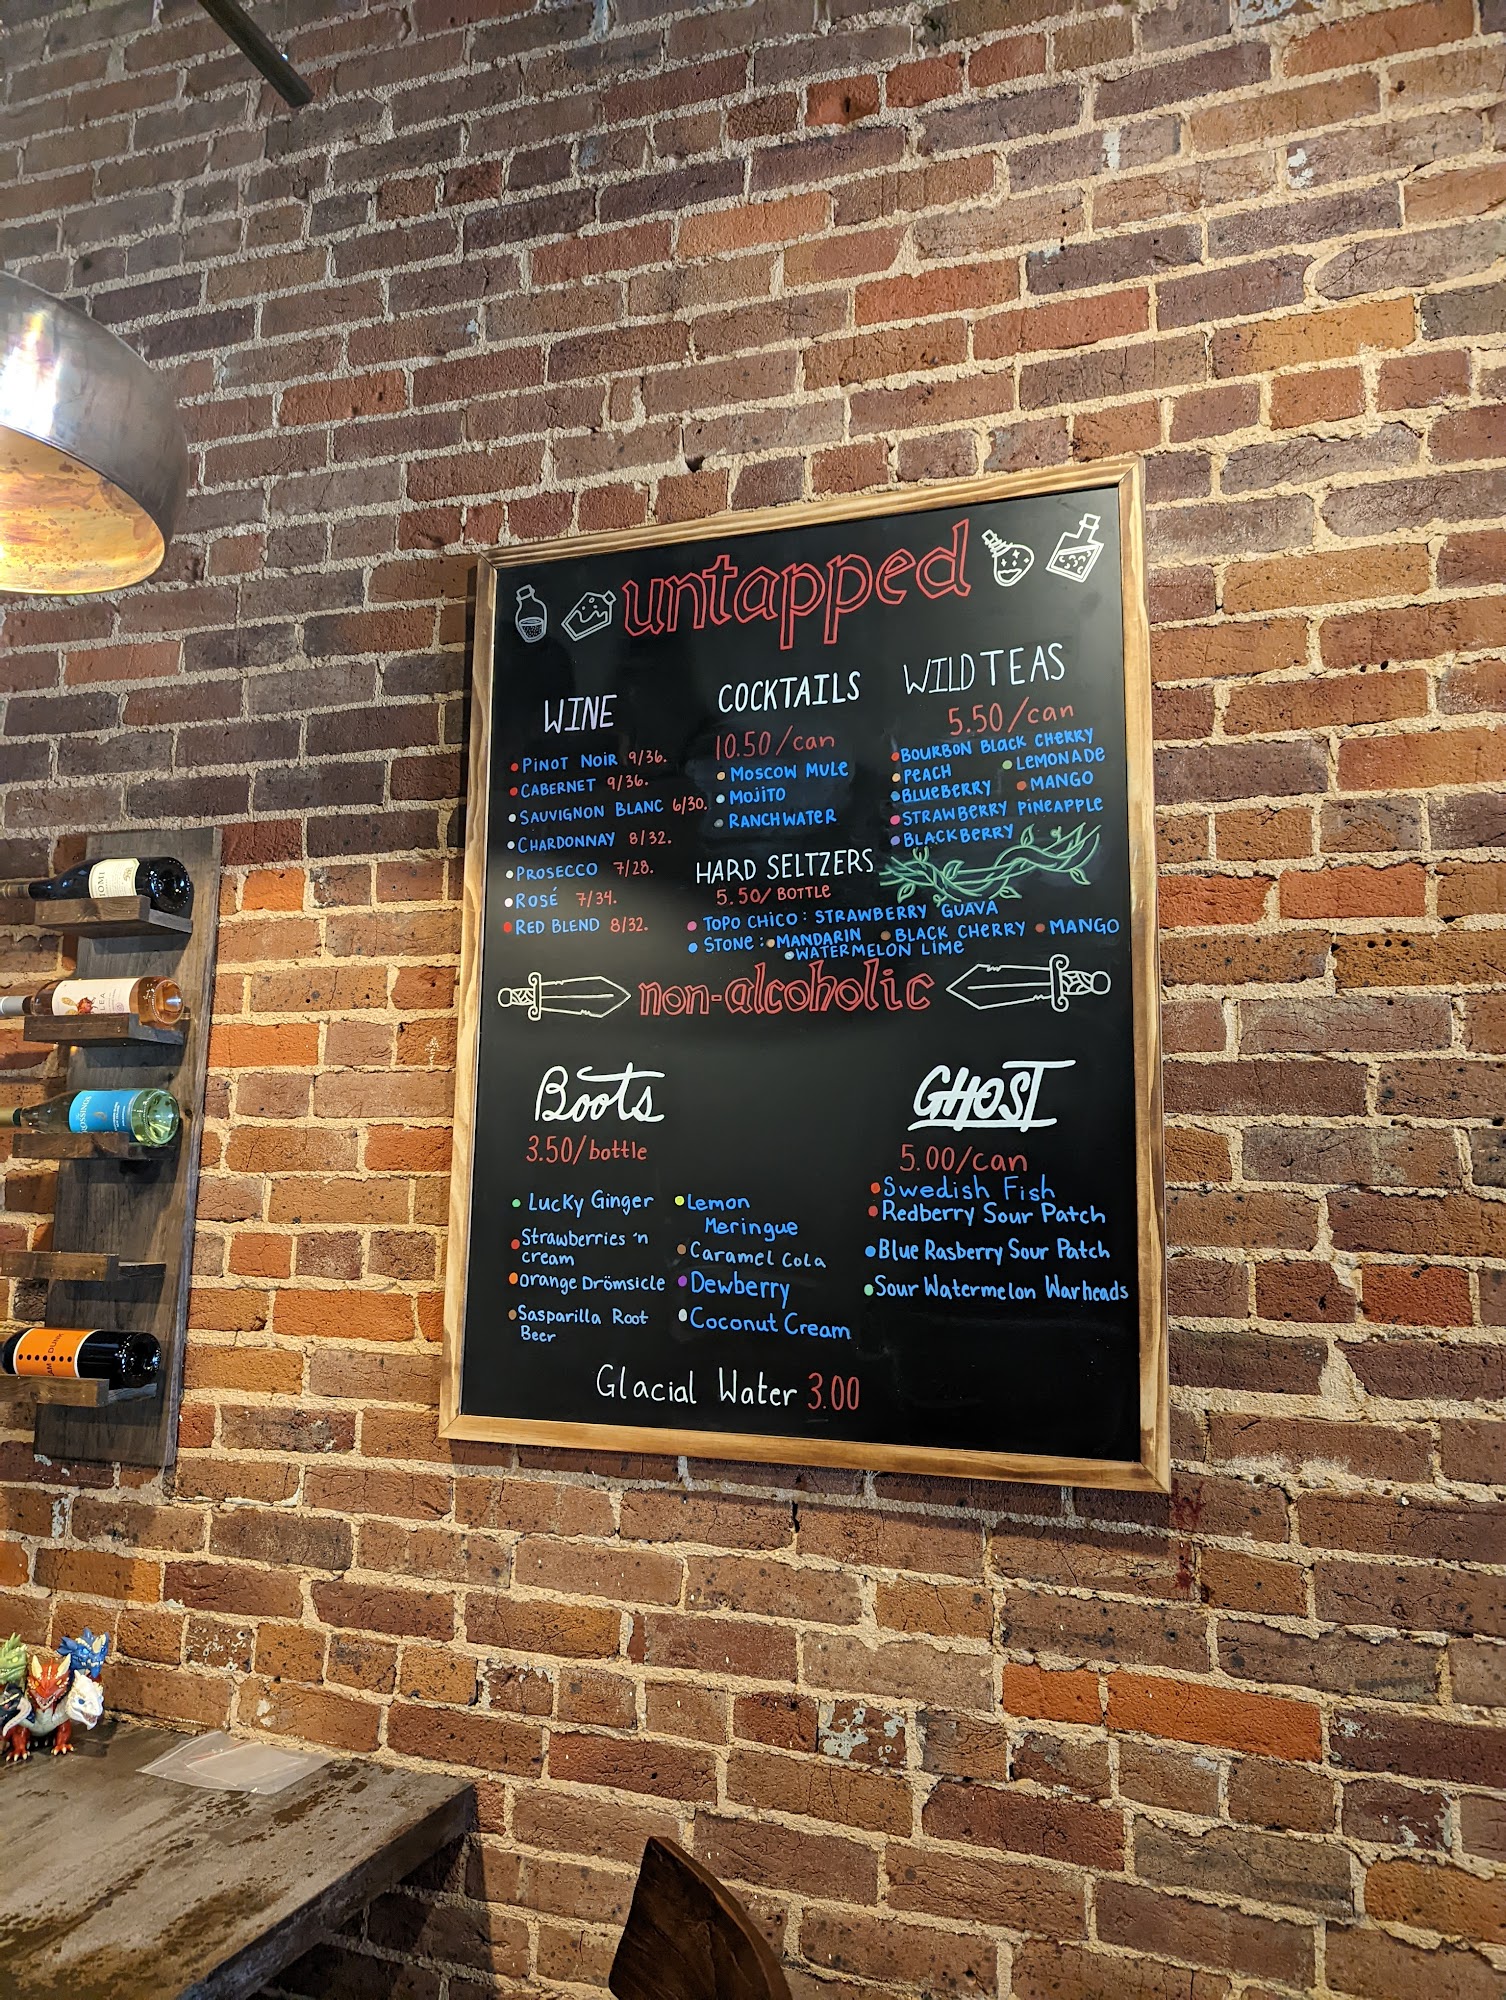 untapped
WINE
PINOT NOIR 9/36.
CABERNET 9/36.
SAUVIGNON BLANC 6/30.
CHARDONNAY 8/32.
PROSECCO 7/28.
ROSÉ 7/34.
RED BLEND 8/32.
COCKTAILS
10.50/can
MOSCOW MULE
MOJITO
RANCH WATER
WILD TEAS
5.50/can
BOURBON BLACK CHERRY
PEACH LEMONADE
BLUEBERRY MANGO
STRAWBERRY PINEAPPLE
BLACKBERRY
HARD SELTZERS
5.50/BOTTLE
TOPO CHICO: STRAWBERRY GUAVA
STONE: MANDARIN BLACK CHERRY MANGO
WATERMELON LIME
non-alcoholic
Boots
3.50/bottle
Lucky Ginger
Strawberries 'n
cream
orange Drömsicle
Sasparilla Root
Beer
Lemon
Meringue
Caramel Cola
Dewberry
Coconut Cream
GHOST
5.00/can
Swedish Fish
Redberry Sour Patch
Blue Rasberry Sour Patch
Sour Watermelon Warheads
Glacial Water 3.00